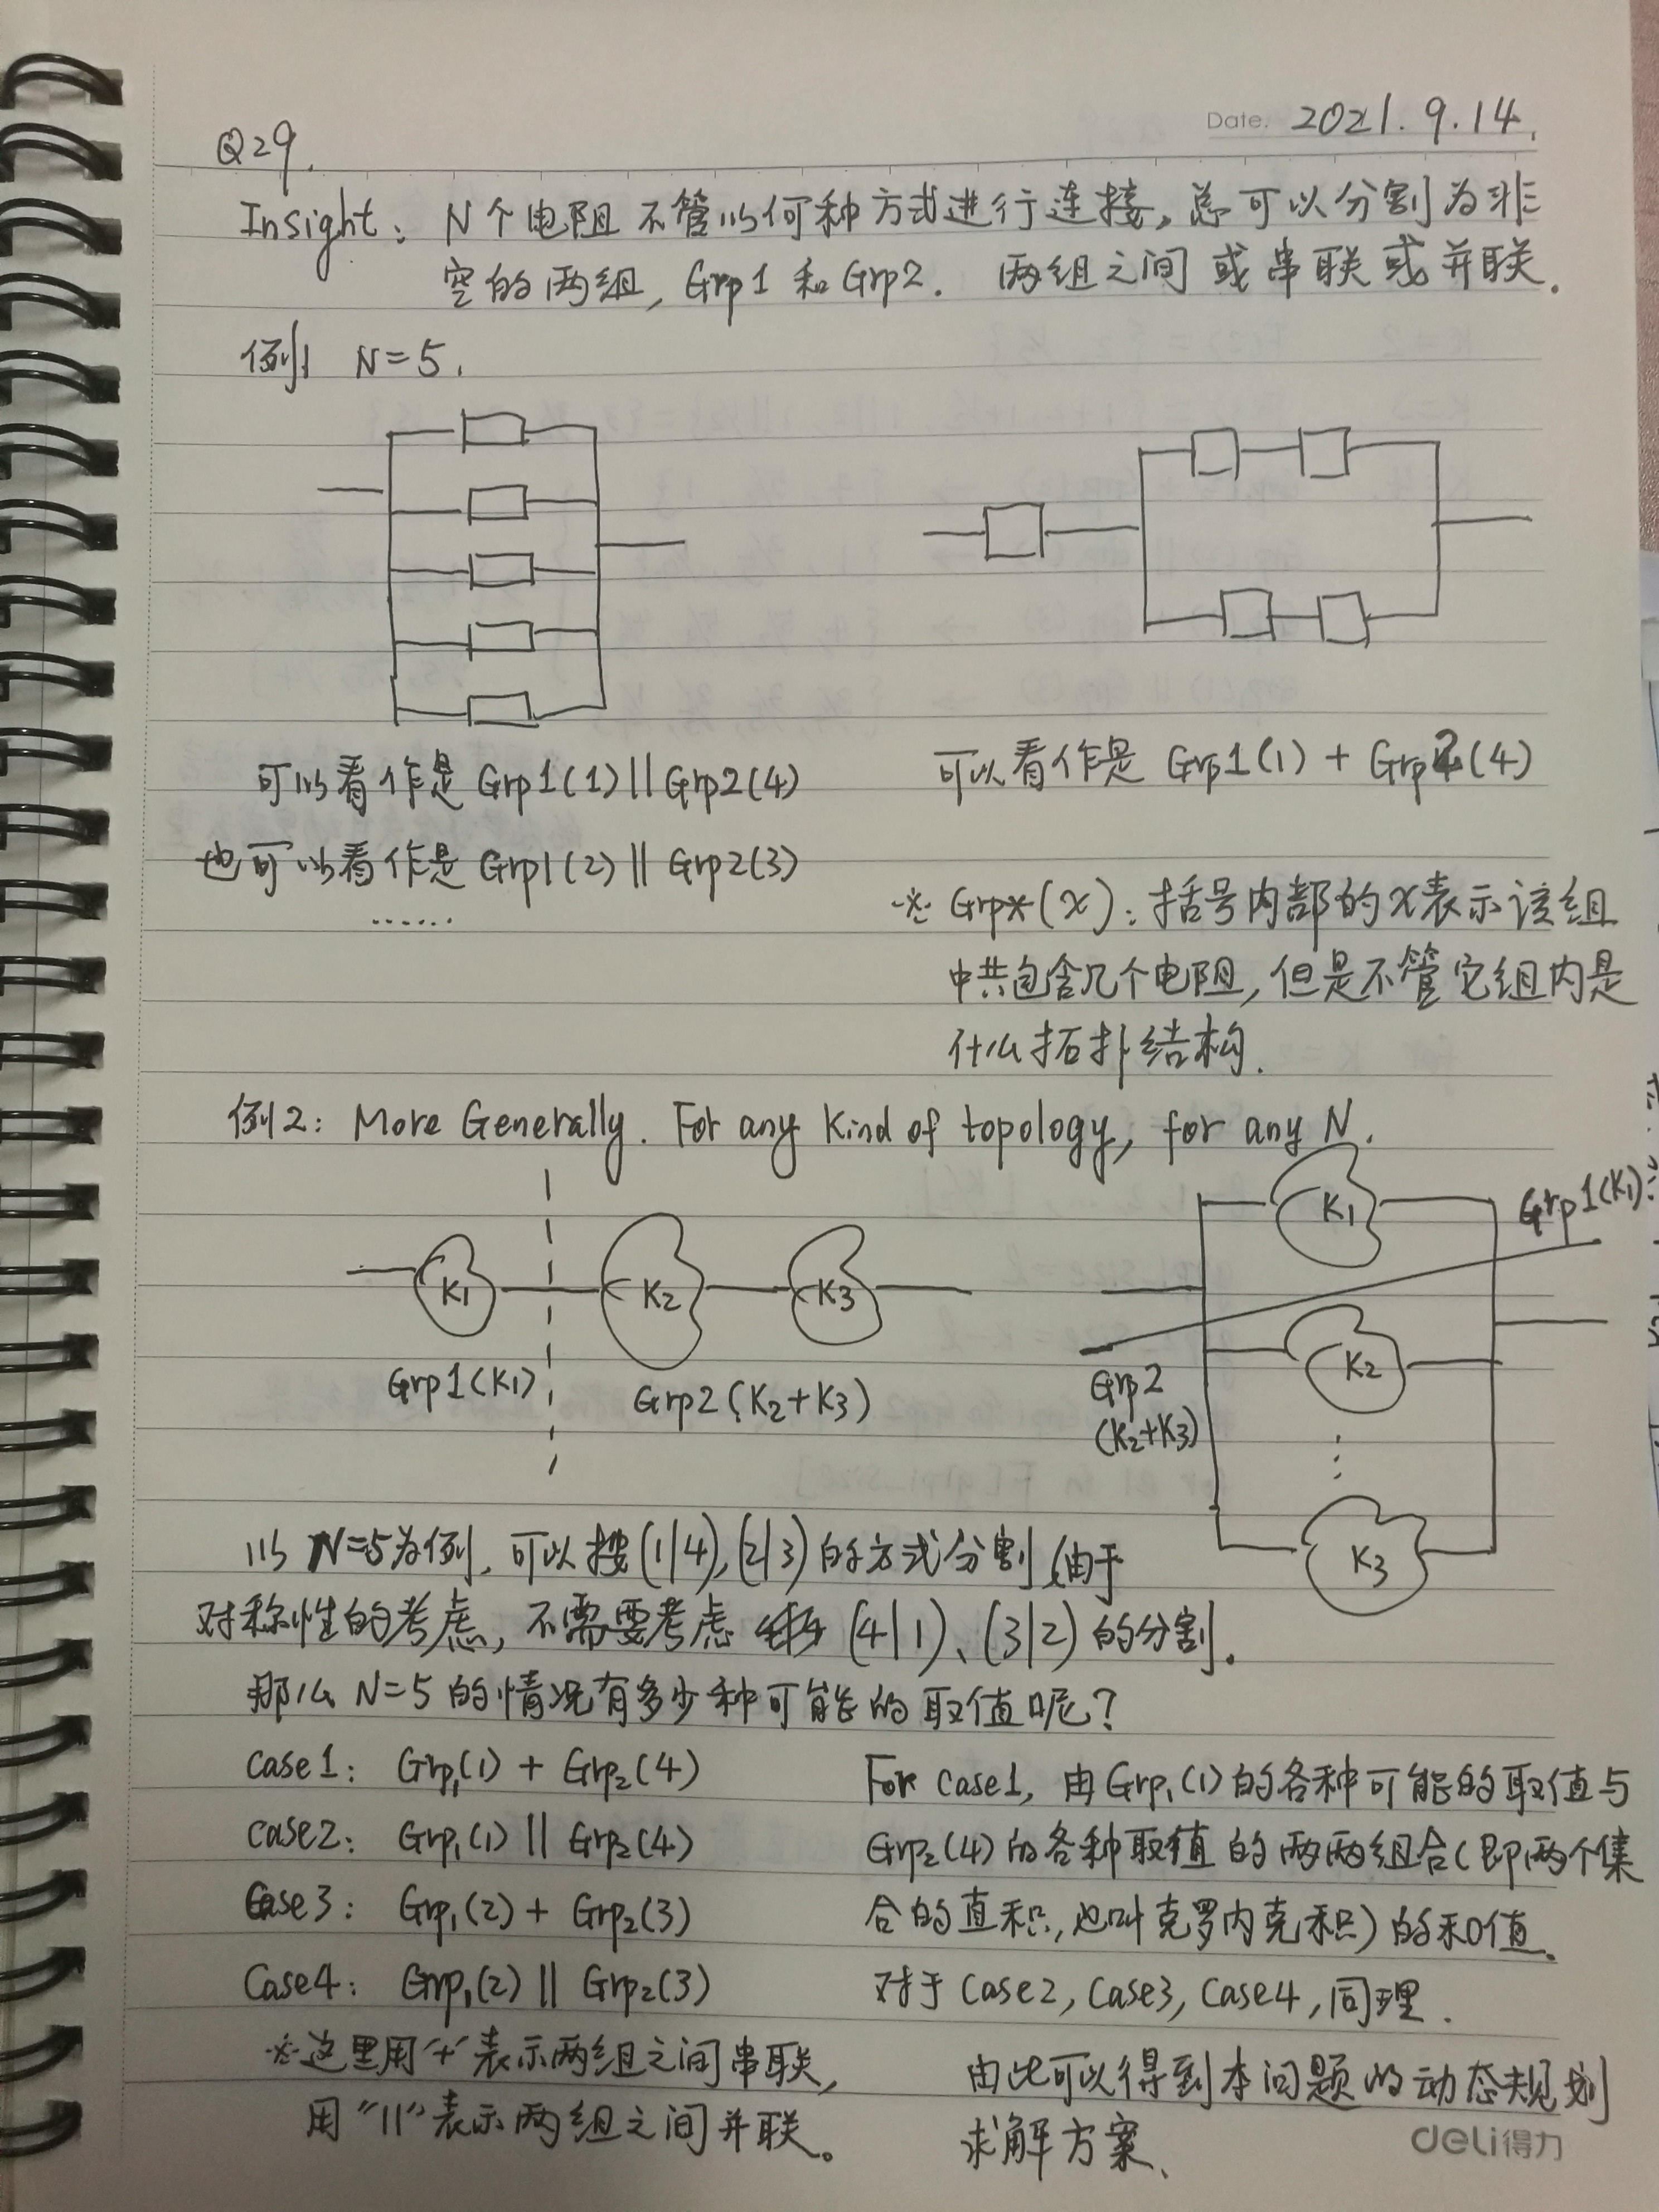 Date. 2021.9.14.
Q29.
Insight: N个电阻不管以何种方式进行连接,总可以分割为非
空的两组, Grp1 和 Grp2. 两组之间或串联或并联.
例1 N=5.
可以看作是 Grp1(1) || Grp2(4)
也可以看作是 Grp1(2) || Grp2(3)
......
可以看作是 Grp1(1) + Grp2(4)
※ Grp*(x): 括号内部的x表示该组
中共包含几个电阻,但是不管它组内是
什么拓扑结构.
例2: More Generally. For any kind of topology, for any N.
K1 K2 K3
Grp1(K1) Grp2(K2+K3)
K1
Grp1(K1)
K2
Grp2
(K2+K3)
K3
以 N=5为例,可以按(1|4),(2|3)的方式分割,由于
对称性的考虑,不需要考虑 (4|1)、(3|2)的分割.
那么 N=5 的情况有多少种可能的取值呢?
case1: Grp1(1) + Grp2(4)
case2: Grp1(1) || Grp2(4)
Case3: Grp1(2) + Grp2(3)
Case4: Grp1(2) || Grp2(3)
※这里用“+”表示两组之间串联,
用“||”表示两组之间并联。
For case1, 由Grp1(1)的各种可能的取值与
Grp2(4)的各种取值的两两组合(即两个集
合的直积,也叫克罗内克积)的和值.
对于 Case2, Case3, Case4, 同理.
由此可以得到本问题的动态规划
求解方案、
deli得力